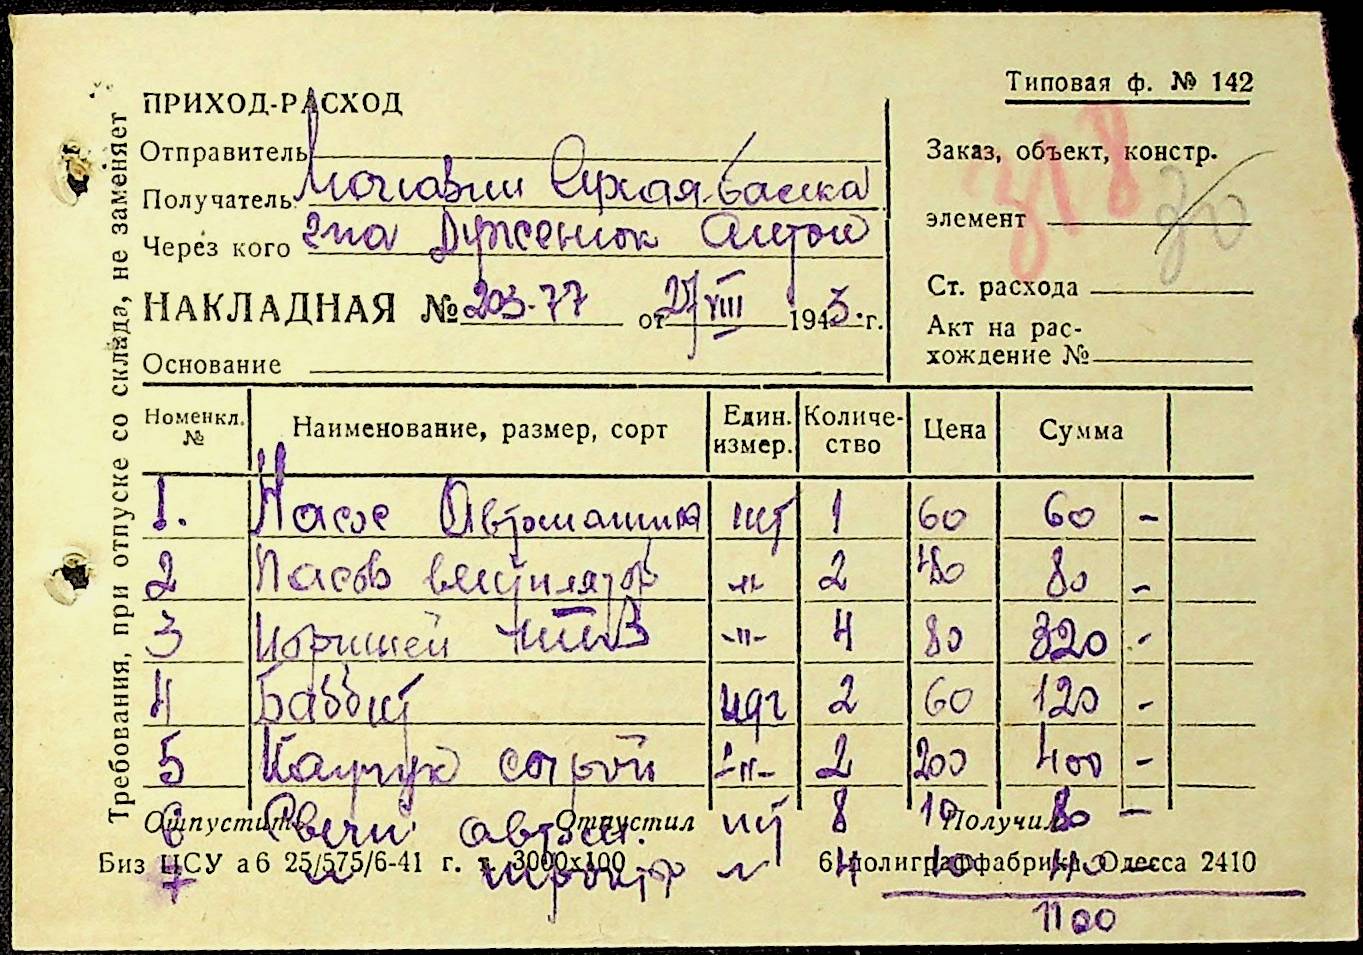 Типовая ф. № 142
ПРИХОД-РАСХОД
Отправитель
Получатель Сухая-балка
Через кого Дуженюк Антон
НАКЛАДНАЯ № 203-77 от 27/VIII 1943. г.
Основание
Заказ, объект, констр.
318
30
элемент
Ст. расхода
Акт на рас-
хождение №
Требования, при отпуске со склада, не заменяет
Номенкл. № Наименование, размер, сорт Един. измер. Количе-ство Цена Сумма
1. Насос Автомашина шт 1 60 60 -
2 Пасов вентилятор -"- 2 40 80 -
3 Поршней -"- 4 80 320 -
4 Баббит кдг 2 60 120 -
5 Каучук сырой -"- 2 200 400 -
6 Свечи автом. шт 8 10 80 -
Отпустить Отпустил Получил
7 " " 4 10 40 -
Биз ЦСУ аб 25/575/6-41 г. т. 3000х100 6 полиграффабрика Одесса 2410
1100